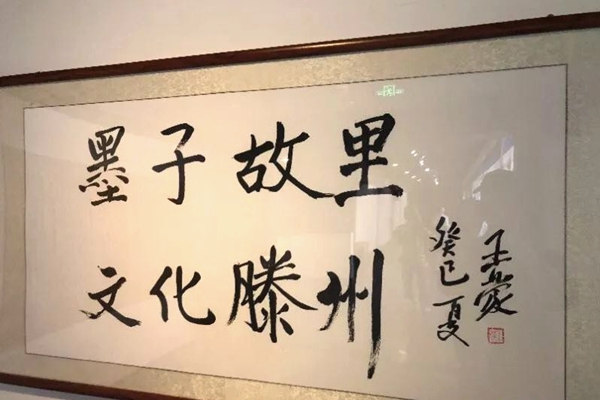 墨子故里
文化滕州
癸巳夏
王蒙